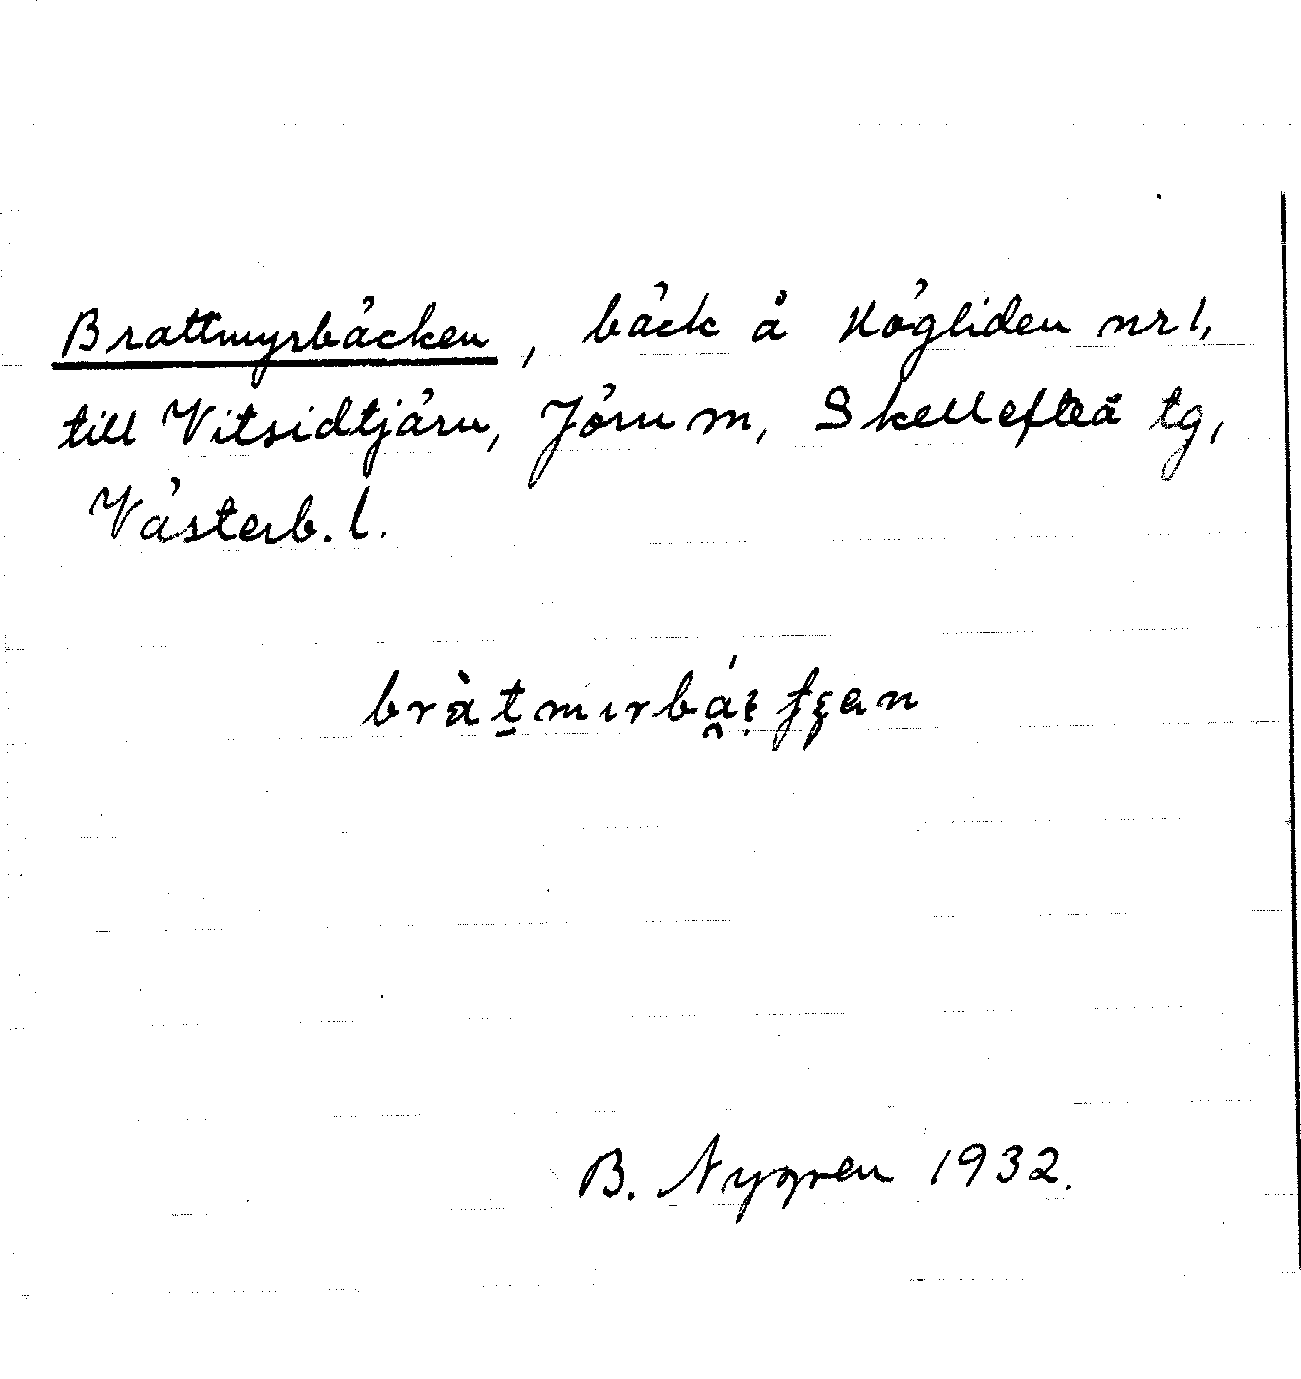 Brattmyrbäcken, bäck å Högliden nr 1,
till Vitsidtjärn, Jörn m, Skellefteå tg,
Västerb. l.
B. Nygren 1932.